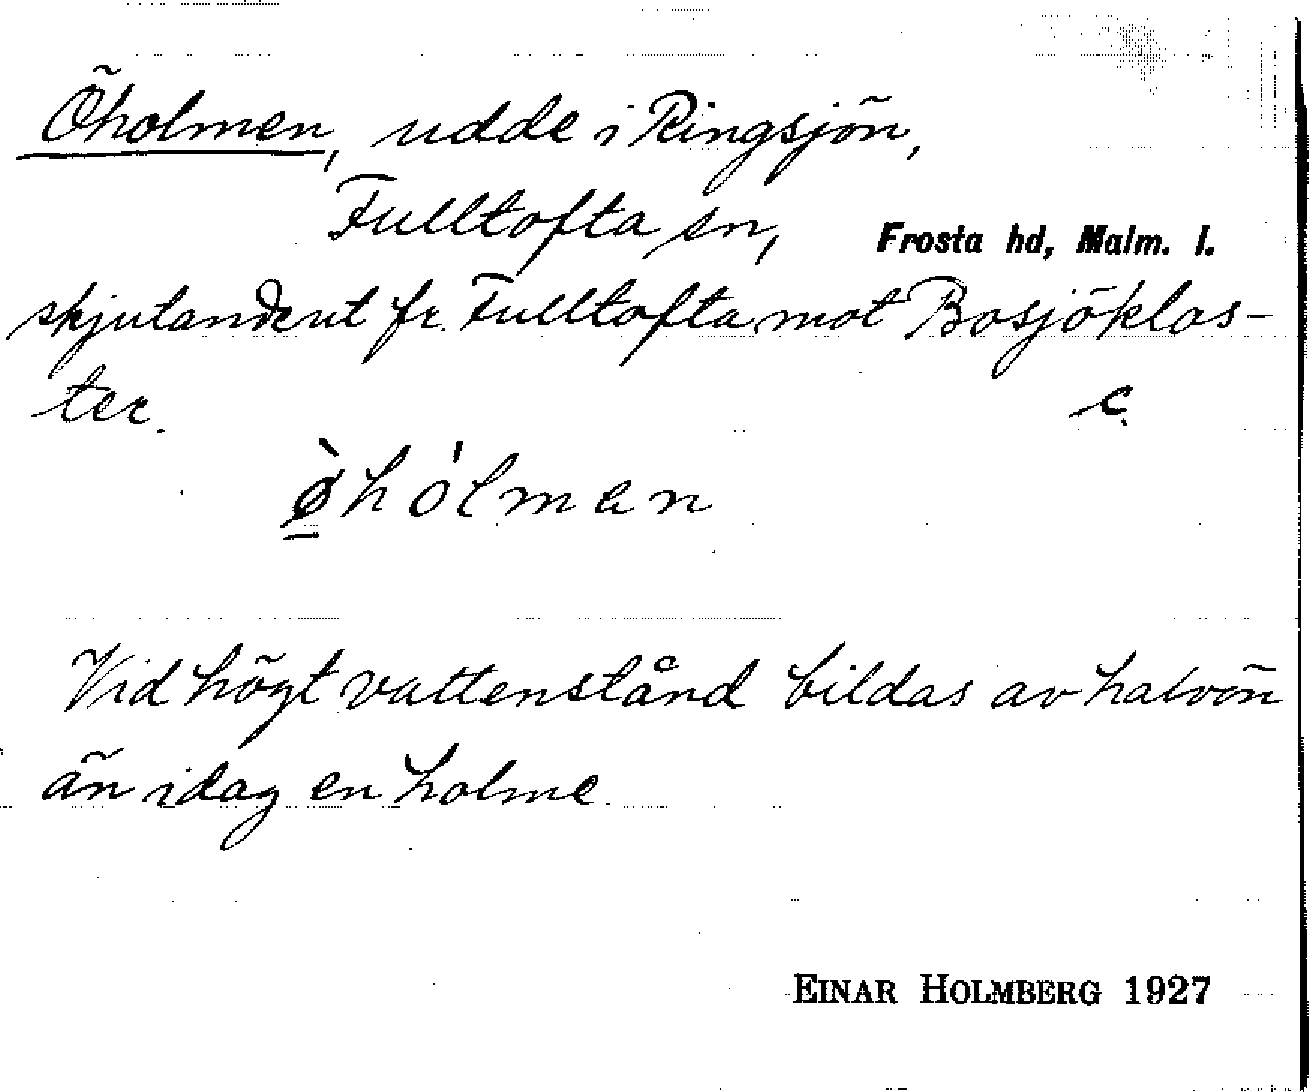 Öholmen, udde i Ringsjön,
Fulltofta sn, Frosta hd, Malm. l.
skjutande ut fr. Fulltofta mot Bosjöklos-
ter. c.
ø̀hólmen
Vid högt vattenstånd bildas av halvön
än idag en holme.
EINAR HOLMBERG 1927